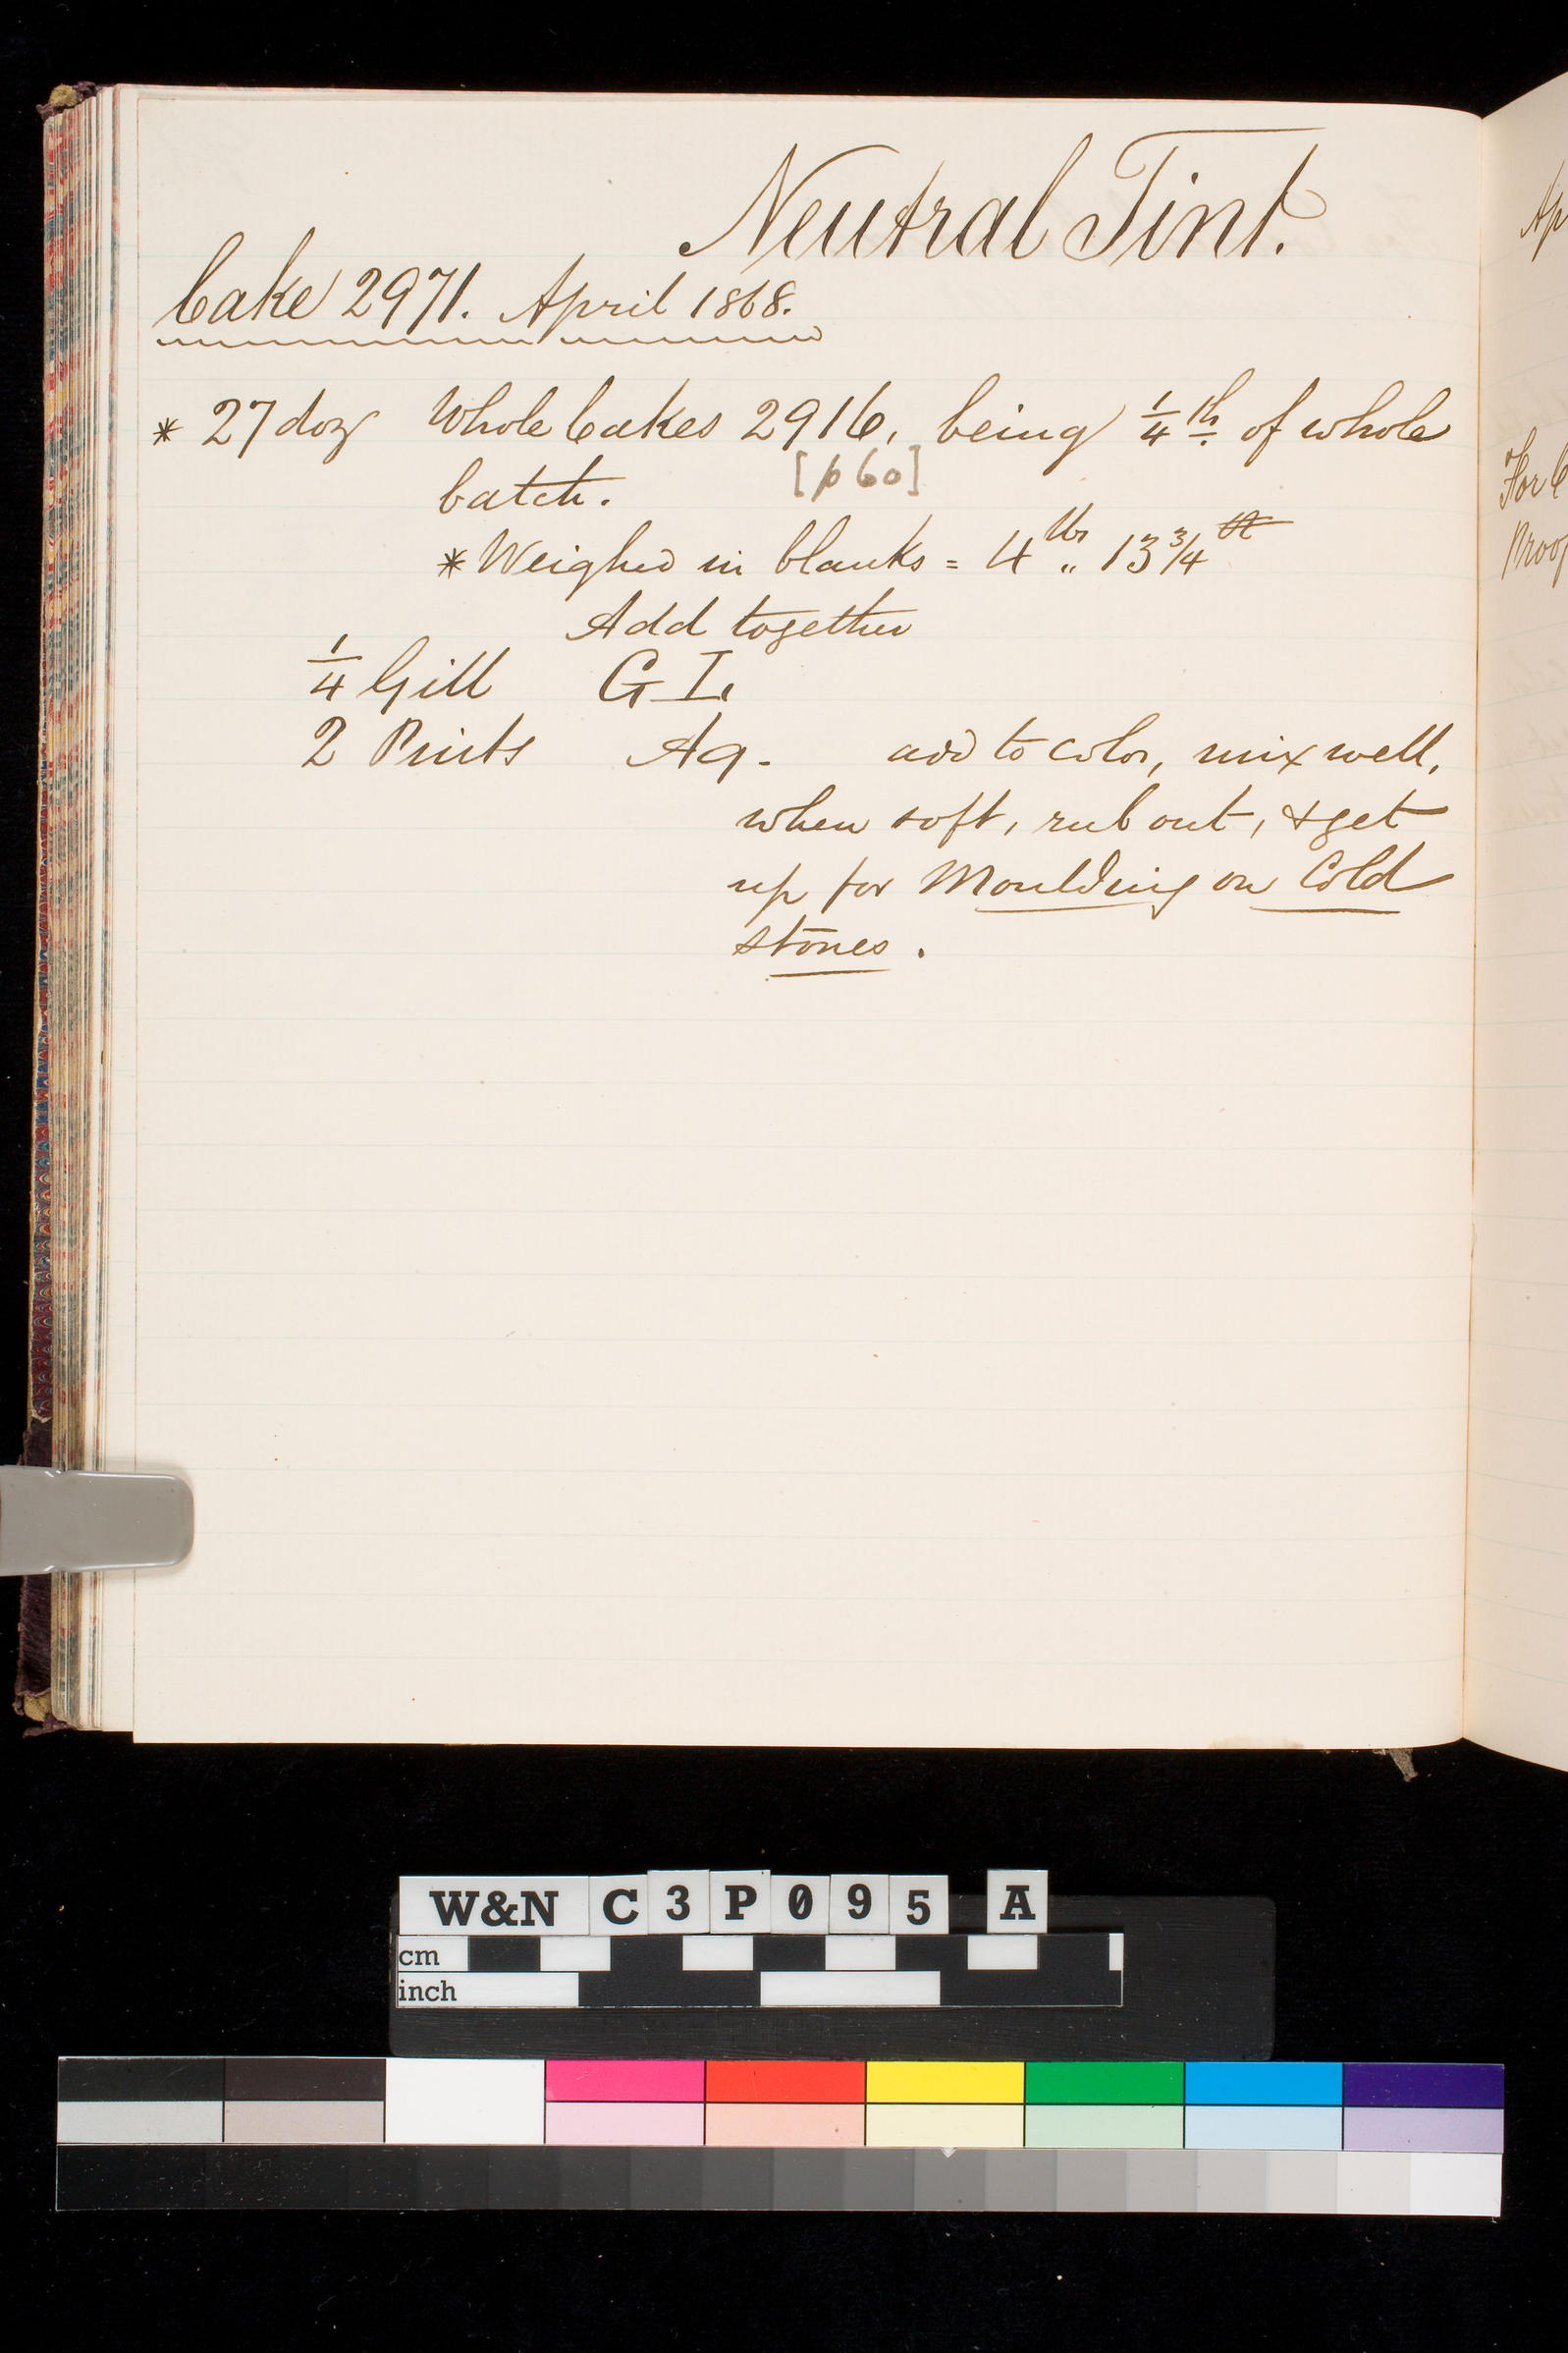 Neutral Tint.
Cake 2971. April 1868.
* 27 doz Whole Cakes 2916, being 1/4th of whole
[p 60]
batch.
* Weighed in blanks = 4 lbs " 13 3/4
Add together
1/4 Gill G I.
2 Pints Aq. add to color, mix well,
when soft, rub out, & get
up for Moulding on Cold
stones.
Ap
For C
Proof
W&N C3P095 A
cm
inch